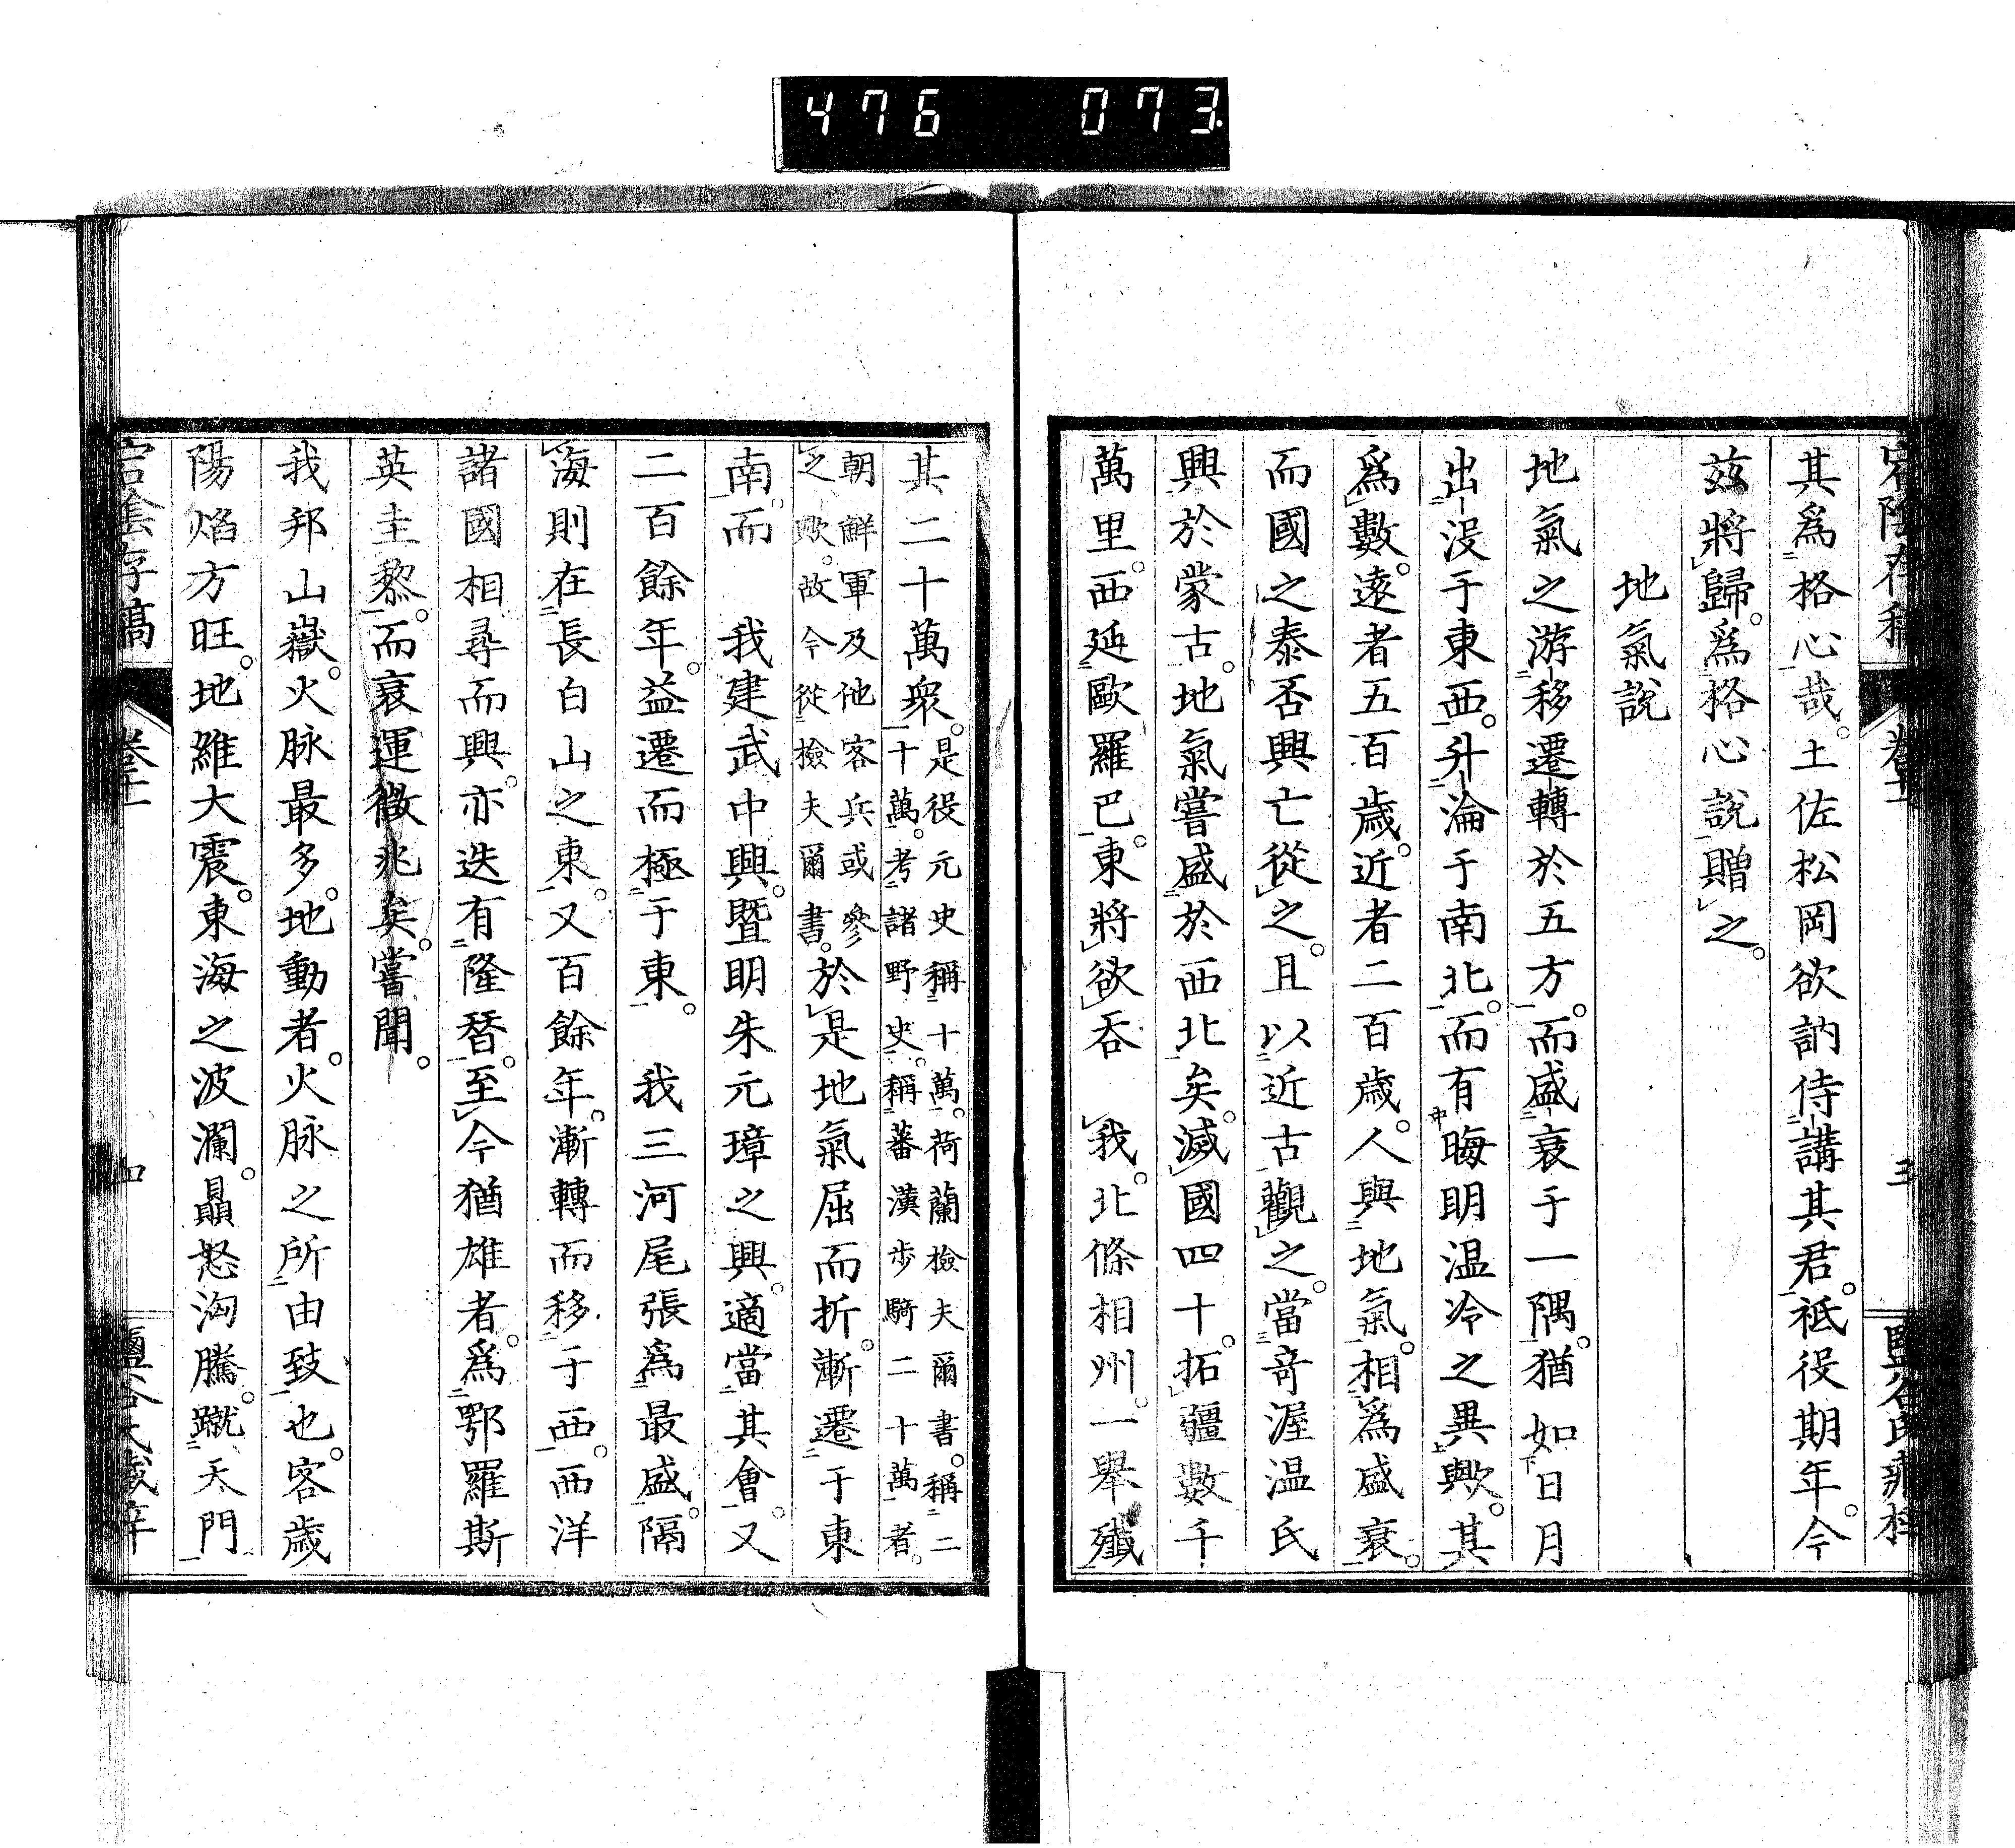 476 073
宕陰存稿 卷十一 三 鹽谷氏藏梓
其爲格心哉。土佐松岡欲訥侍講其君。祗役期年。今
茲將歸。爲格心說贈之。
地氣說
地氣之游移遷轉於五方。而盛衰于一隅。猶如日月
出沒于東西。升淪于南北。而有晦明温冷之異歟。其
爲數。遠者五百歲。近者二百歲。人與地氣。相爲盛衰。
而國之泰否興亡從之。且以近古觀之。當奇渥温氏
興於蒙古。地氣嘗盛於西北矣。滅國四十。拓疆數千
萬里。西延歐羅巴。東將欲吞 我。北條相州。一舉殲
其二十萬衆。是役元史稱十萬。荷蘭檢夫爾書。稱二
十萬。考諸野史。稱蕃漢步騎二十萬者。
朝鮮軍及他客兵或參
之歟。故今從檢夫爾書。於是地氣屈而折。漸遷于東
南。而 我建武中興。暨明朱元璋之興。適當其會。又
二百餘年。益遷而極于東。 我三河尾張爲最盛。隔
海則在長白山之東。又百餘年。漸轉而移于西。西洋
諸國相尋而興。亦迭有隆替。至今猶雄者。爲鄂羅斯
英圭黎。而衰運徵兆矣。嘗聞。
我邦山嶽。火脉最多。地動者。火脉之所由致也。客歲
陽焰方旺。地維大震。東海之波瀾。贔怒洶騰。蹴天門
宕陰存稿 卷十一 四 鹽谷氏藏梓